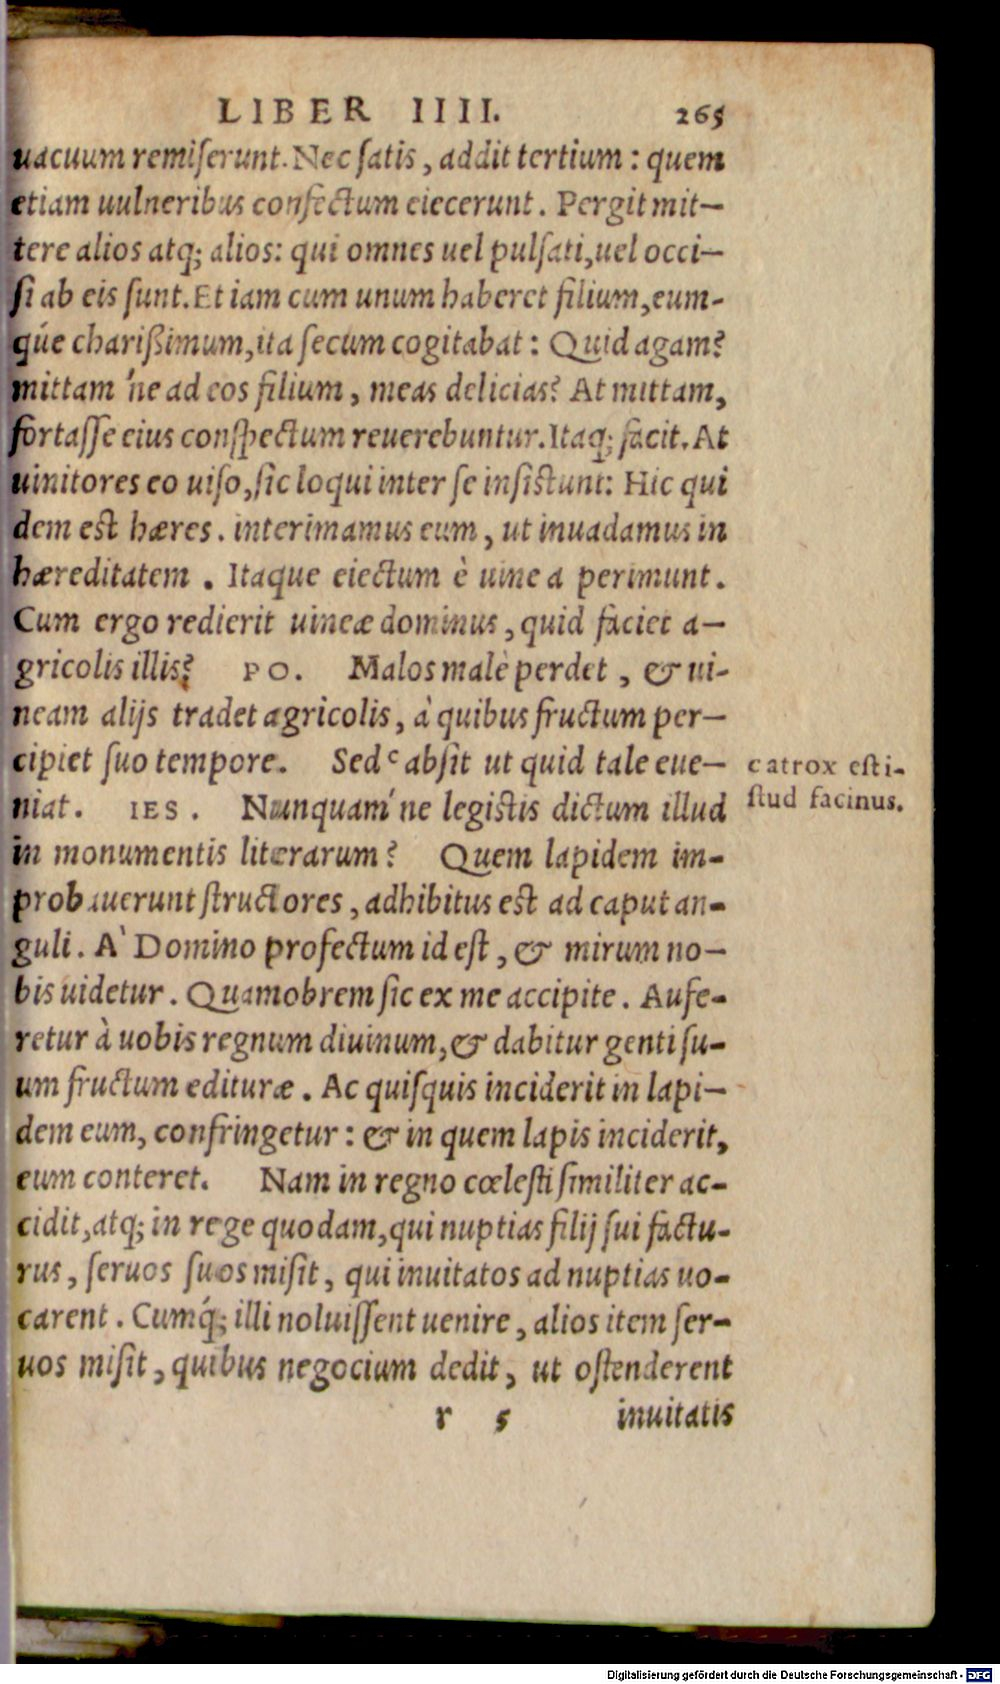 LIBER IIII. 265
uacuum remiſerunt. Nec ſatis, addit tertium: quem
etiam uulneribus confectum eiecerunt. Pergit mit–
tere alios atq; alios: qui omnes uel pulſati, uel occi–
ſi ab eis ſunt. Et iam cum unum haberet filium, eum-
q́ue charißimum, ita ſecum cogitabat: Quid agam?
mittam 'ne ad eos filium, meas delicias? At mittam,
fortaſſe eius conſpectum reuerebuntur. Itaq; facit. At
uinitores eo uiſo, ſic loqui inter ſe inſiſtunt: Hic qui
dem est hæres. interimamus eum, ut inuadamus in
hæreditatem. Itaque eiectum è uinea perimunt.
Cum ergo redierit uineæ dominus, quid faciet a–
gricolis illis? PO. Malos malè perdet, & ui-
neam alijs tradet agricolis, à quibus fructum per–
cipiet ſuo tempore. Sed ᶜ abſit ut quid tale eue–
niat. IES. Nunquam 'ne legiſtis dictum illud
in monumentis literarum? Quem lapidem im-
probauerunt ſtructores, adhibitus est ad caput an-
guli. A` Domino profectum id eſt, & mirum no–
bis uidetur. Quamobrem ſic ex me accipite. Aufe-
retur à uobis regnum diuinum, & dabitur genti ſu-
um fructum edituræ. Ac quiſquis inciderit in lapi–
dem eum, confringetur: & in quem lapis inciderit,
eum conteret. Nam in regno cœleſti ſimiliter ac-
cidit, atq; in rege quodam, qui nuptias filij ſui factu-
rus, ſeruos ſuos miſit, qui inuitatos ad nuptias uo-
carent. Cumq́; illi noluiſſent uenire, alios item ſer-
uos miſit, quibus negocium dedit, ut oſtenderent
r 5 inuitatis
c atrox eſt i-
ſtud facinus.
Digitalisierung gefördert durch die Deutsche Forschungsgemeinschaft - DFG